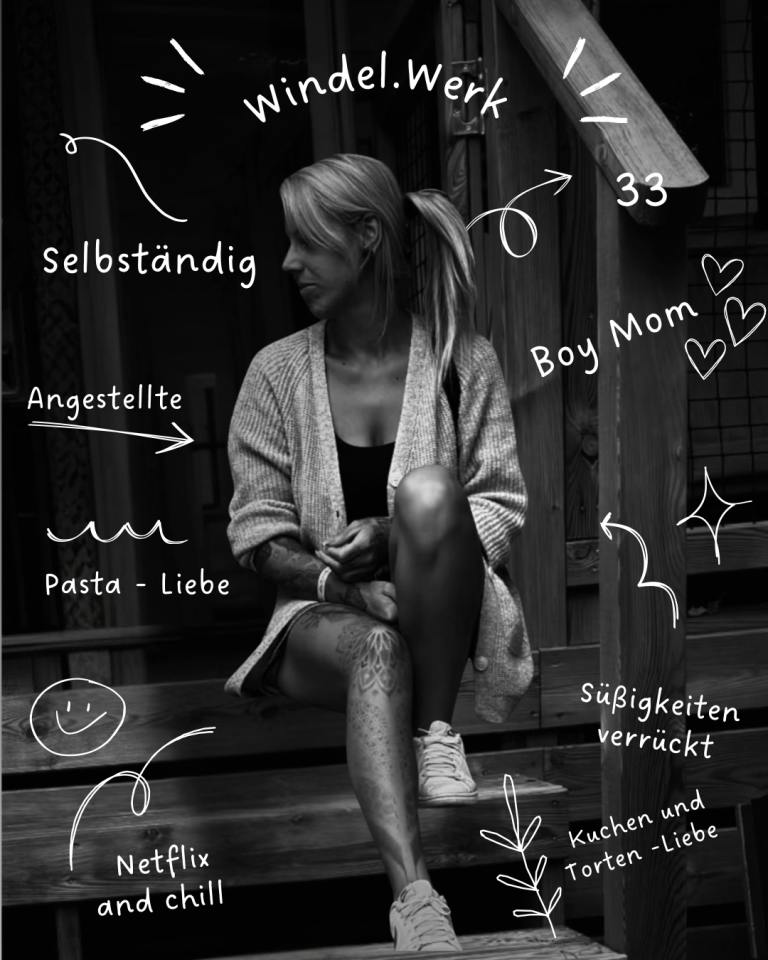 Windel.Werk
33
Selbständig
Boy Mom
Angestellte
Pasta - Liebe
Süßigkeiten
verrückt
Kuchen und
Torten -Liebe
Netflix
and chill